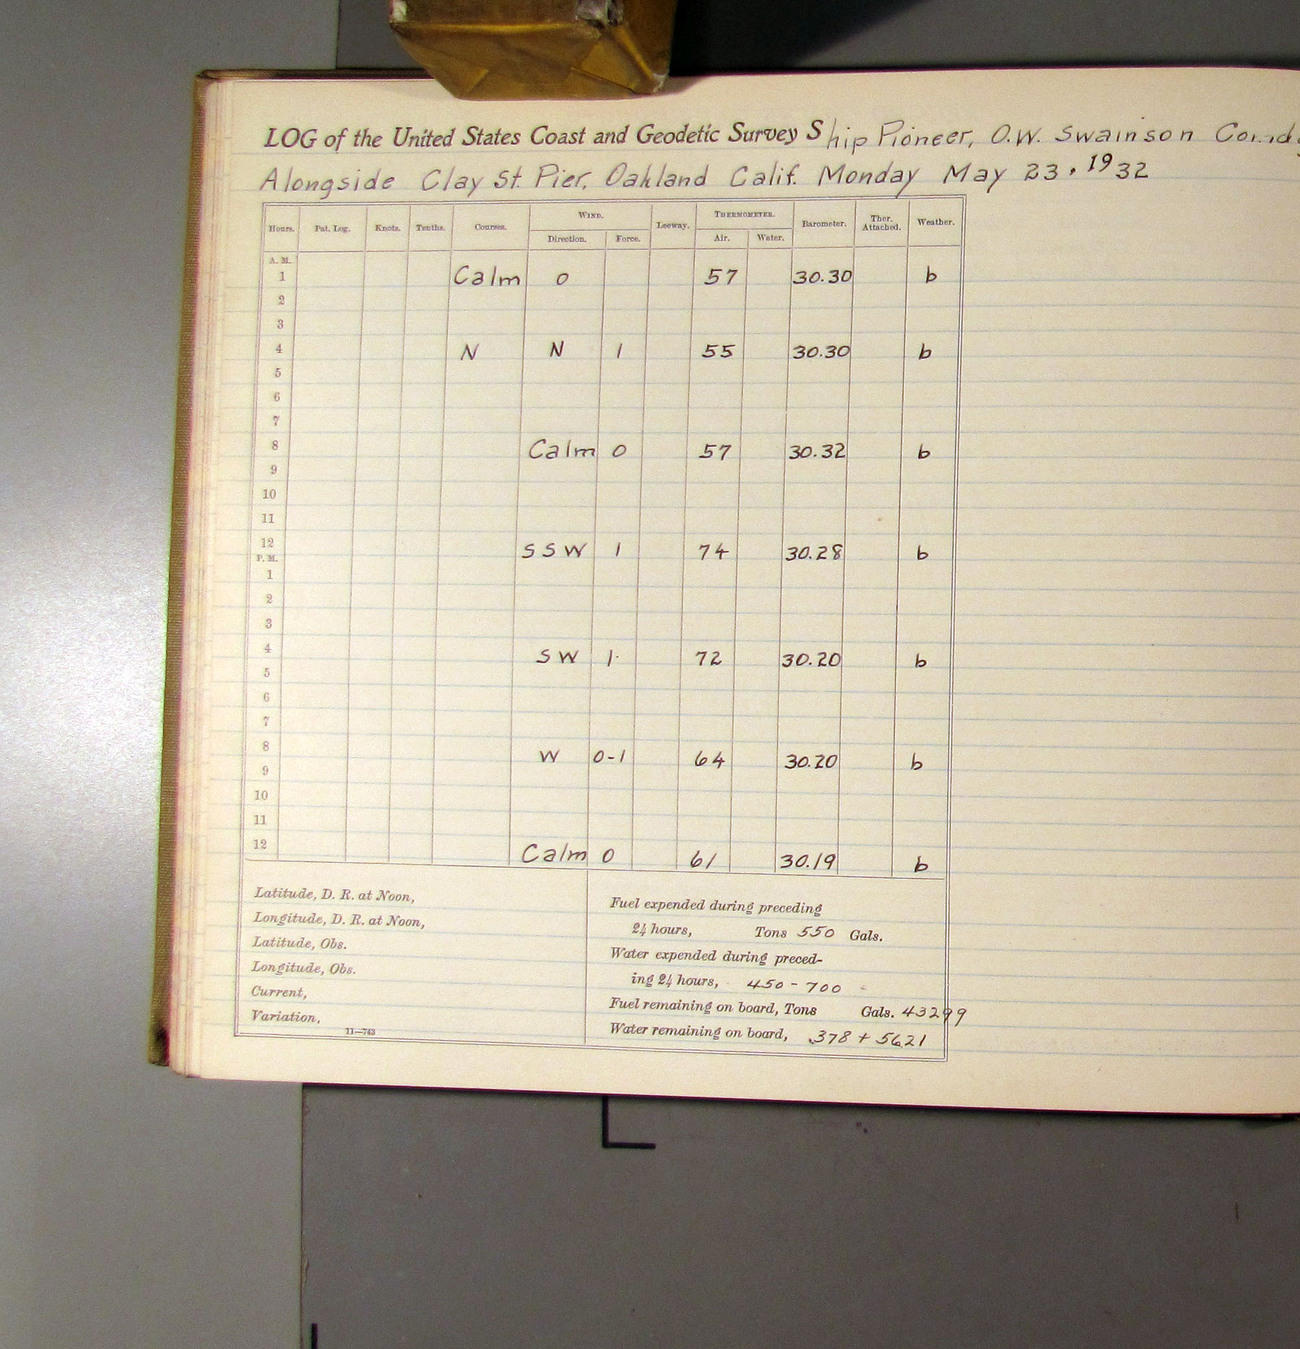 LOG of the United States Coast and Geodetic Survey Ship Pioneer, O.W. Swainson
Alongside Clay St. Pier, Oakland Calif. Monday May 23, 1932
Hours. Pat. Log. Knots. Tenths. Courses. WIND. Leeway. THERMOMETER. Barometer. Ther. Attached. Weather.
Direction. Force. Air. Water.
A. M.
1 Calm 0 57 30.30 b
2
3
4 N N 1 55 30.30 b
5
6
7
8 Calm 0 57 30.32 b
9
10
11
12 SSW 1 74 30.28 b
P. M.
1
2
3
4 SW 1 72 30.20 b
5
6
7
8 W 0-1 64 30.20 b
9
10
11
12 Calm 0 61 30.19 b
Latitude, D. R. at Noon,
Longitude, D. R. at Noon,
Latitude, Obs.
Longitude, Obs.
Current,
Variation,
11—763
Fuel expended during preceding
24 hours, Tons 550 Gals.
Water expended during preced-
ing 24 hours, 450 - 700
Fuel remaining on board, Tons Gals. 43299
Water remaining on board, 378 + 5621